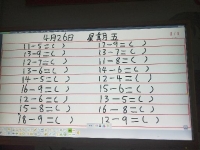 4月26日 星期五
11-5=( ) 17-9=( )
13-9=( ) 13-7=( )
12-7=( ) 11-8=( )
13-6=( ) 14-6=( )
14-5=( ) 12-4=( )
16-9=( ) 15-6=( )
12-6=( ) 13-5=( )
15-8=( ) 16-8=( )
18-9=( ) 12-9=( )